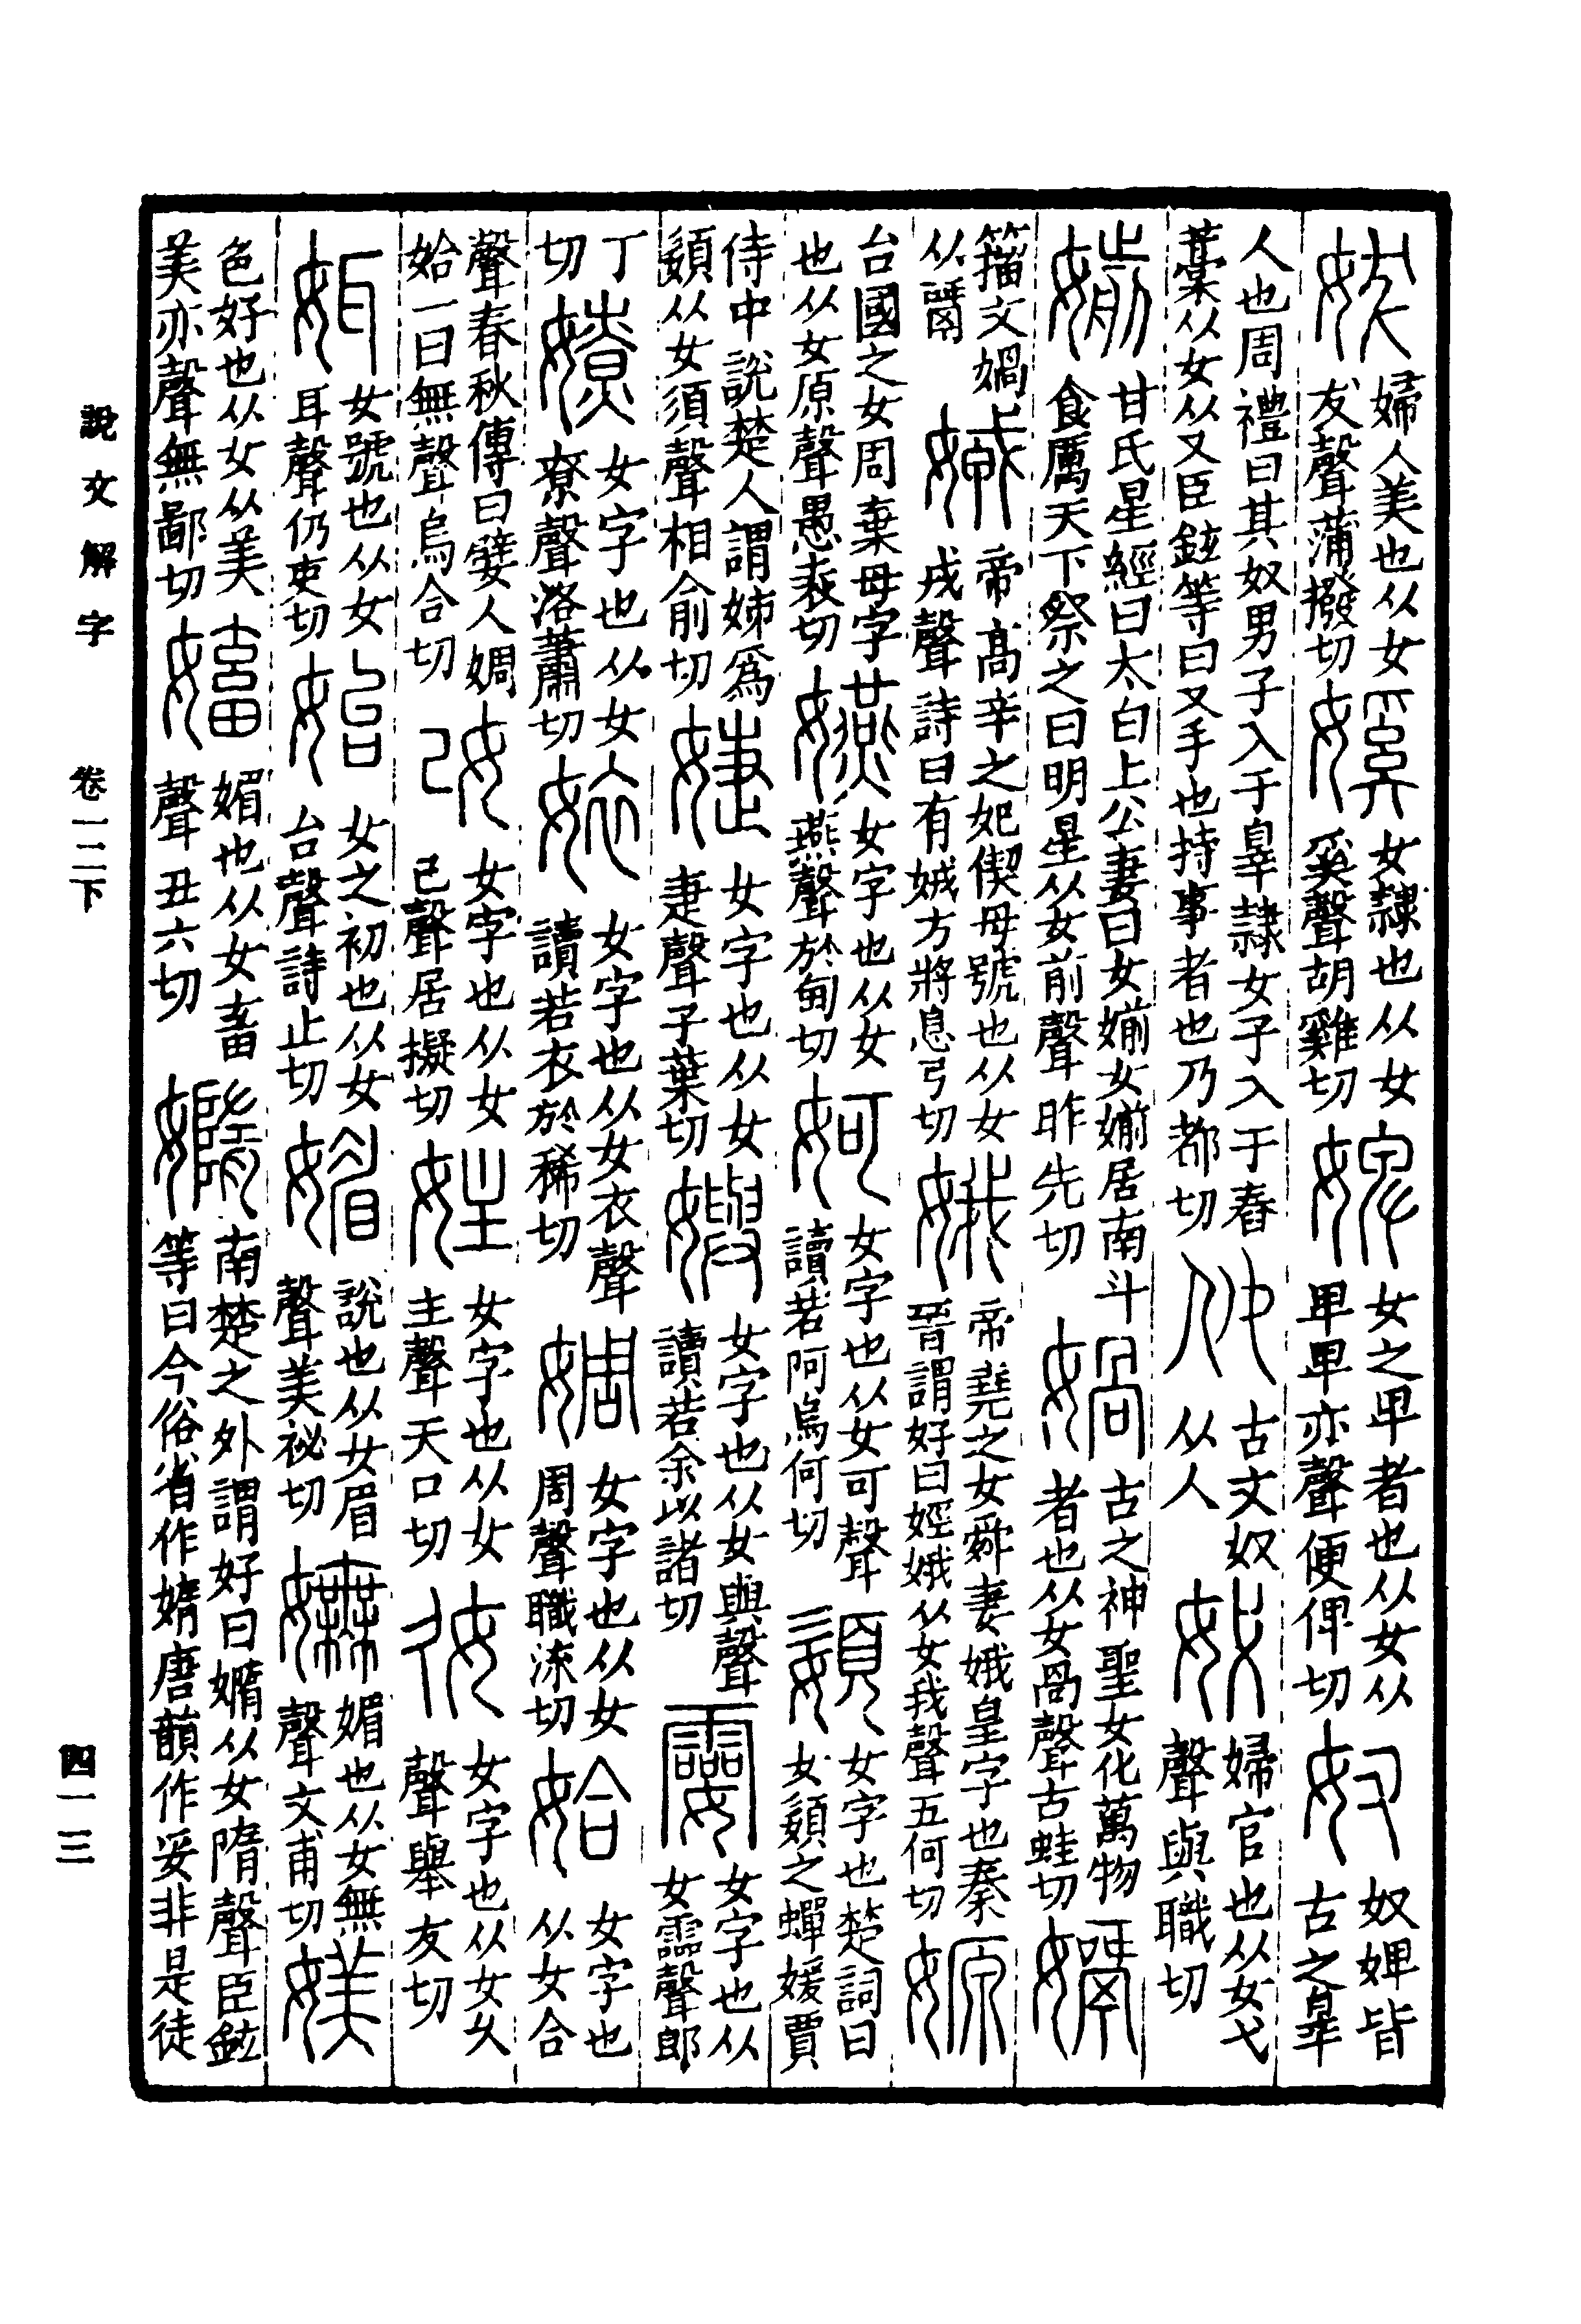 妭婦人美也从女犮聲蒲撥切㜎女隸也从女奚聲胡雞切婢女之卑者也从女从卑卑亦聲便俾切奴奴婢皆古之辠
人也周禮曰其奴男子入于辠隸女子入于舂藁从女从又臣鉉等曰又手也持事者也乃都切㚢古文奴从人妷婦官也从女弋聲與職切
媊甘氏星經曰太白上公妻曰女媊女媊居南斗食厲天下祭之曰明星从女前聲昨先切媧古之神聖女化萬物者也从女咼聲古蛙切
籒文媧从𩰲娀帝高辛之妃偰母號也从女戎聲詩曰有娀方將息弓切娥帝堯之女舜妻娥皇字也秦晉謂好曰娙娥从女我聲五何切嫄
台國之女周棄母字也从女原聲愚袁切嬿女字也从女燕聲於甸切妸女字也从女可聲讀若阿烏何切嬃女字也楚詞曰女嬃之蟬媛賈
侍中說楚人謂姊爲嬃从女須聲相俞切婕女字也从女疌聲子葉切嬩女字也从女與聲讀若余以諸切孁女字也从女霝聲郎
丁切嫽女字也从女尞聲洛蕭切㛄女字也从女衣聲讀若衣於稀切婤女字也从女周聲職流切姶女字也从女合
聲春秋傳曰嬖人婤姶一曰無聲烏合切妀女字也从女己聲居擬切妵女字也从女主聲天口切㚬女字也从女久聲舉友切
姏女號也从女耳聲仍吏切始女之初也从女台聲詩止切媚說也从女眉聲美祕切嫵媚也从女無聲文甫切媄
色好也从女从美美亦聲無鄙切嬌媚也从女畜聲丑六切嫷南楚之外謂好曰嫷从女隋聲臣鉉等曰今俗省作媠唐韻作妥非是徒
說文解字　卷一二下　四一三